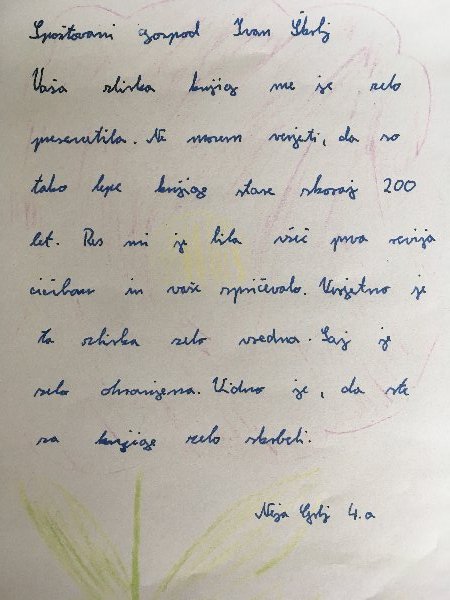 Spoštovani gospod Ivan Škrlj
Vaša zbirka knjig me je zelo
presenetila. Ne morem verjeti, da so
tako lepe knjige stare skoraj 200
let. Res mi je bila všeč prva revija
ciciban in vaše spričevalo. Verjetno je
ta zbirka zelo vredna. Saj je
zelo ohranjena. Vidno je, da ste
za knjige zelo skrbeli.
Neja Grlj 4.a